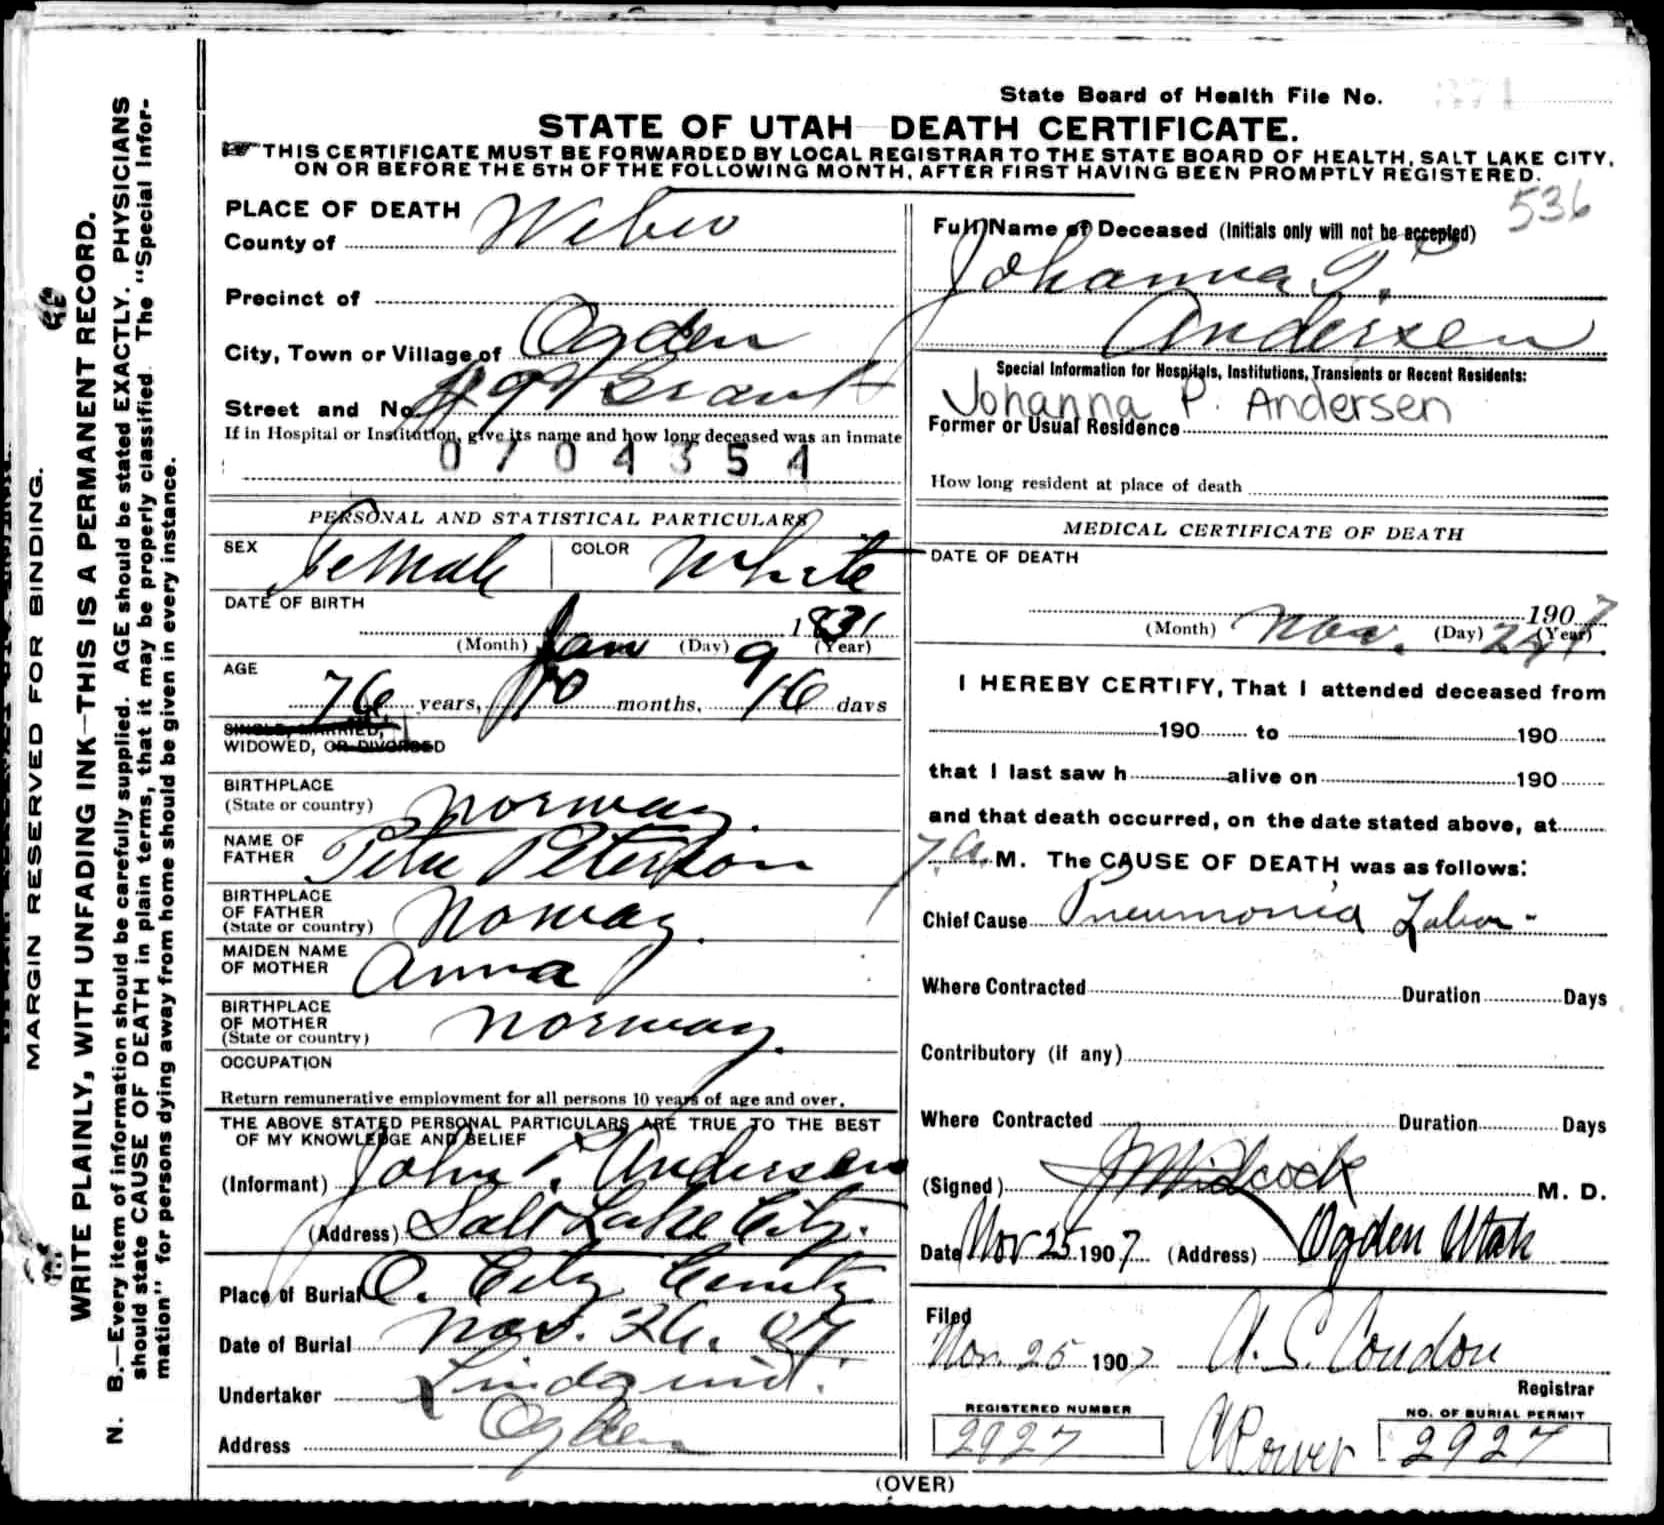 State Board of Health File No.
STATE OF UTAH DEATH CERTIFICATE.
THIS CERTIFICATE MUST BE FORWARDED BY LOCAL REGISTRAR TO THE STATE BOARD OF HEALTH, SALT LAKE CITY,
ON OR BEFORE THE 5TH OF THE FOLLOWING MONTH, AFTER FIRST HAVING BEEN PROMPTLY REGISTERED.
536
MARGIN RESERVED FOR BINDING.
WRITE PLAINLY, WITH UNFADING INK—THIS IS A PERMANENT RECORD.
N. B.—Every item of information should be carefully supplied. AGE should be stated EXACTLY. PHYSICIANS
should state CAUSE OF DEATH in plain terms, that it may be properly classified. The "Special Infor-
mation" for persons dying away from home should be given in every instance.
PLACE OF DEATH
County of Weber
Precinct of
City, Town or Village of Ogden
Street and No. Grant
If in Hospital or Institution, give its name and how long deceased was an inmate
0704354
PERSONAL AND STATISTICAL PARTICULARS
SEX Female COLOR White
DATE OF BIRTH
1831
(Month) Jan (Day) 9 (Year)
AGE
76 years, 10 months, 16 days
SINGLE, MARRIED,
WIDOWED, OR DIVORCED
BIRTHPLACE
(State or country) Norway.
NAME OF
FATHER Peter Peterson
BIRTHPLACE
OF FATHER
(State or country) Norway.
MAIDEN NAME
OF MOTHER Anna
BIRTHPLACE
OF MOTHER
(State or country) Norway.
OCCUPATION
Return remunerative employment for all persons 10 years of age and over.
THE ABOVE STATED PERSONAL PARTICULARS ARE TRUE TO THE BEST
OF MY KNOWLEDGE AND BELIEF
(Informant) John P. Andersen
(Address) Salt Lake City.
Place of Burial O. City Cemty
Date of Burial Nov. 26. 07
Undertaker Lindquist.
Address Ogden
Full Name of Deceased (Initials only will not be accepted)
Johanna P.
Andersen
Special Information for Hospitals, Institutions, Transients or Recent Residents:
Johanna P. Andersen
Former or Usual Residence
How long resident at place of death
MEDICAL CERTIFICATE OF DEATH
DATE OF DEATH
1907
(Month) Nov. (Day) (Year)
I HEREBY CERTIFY, That I attended deceased from
190 to 190
that I last saw h alive on 190
and that death occurred, on the date stated above, at
7 A. M. The CAUSE OF DEATH was as follows:
Chief Cause Pneumonia Lobar -
Where Contracted Duration Days
Contributory (if any)
Where Contracted Duration Days
(Signed) M. D.
Date Nov 25 1907 (Address) Ogden Utah
Filed
Nov. 25 1907 A. S. Condon
Registrar
REGISTERED NUMBER
2927
NO. OF BURIAL PERMIT
2927
(OVER)